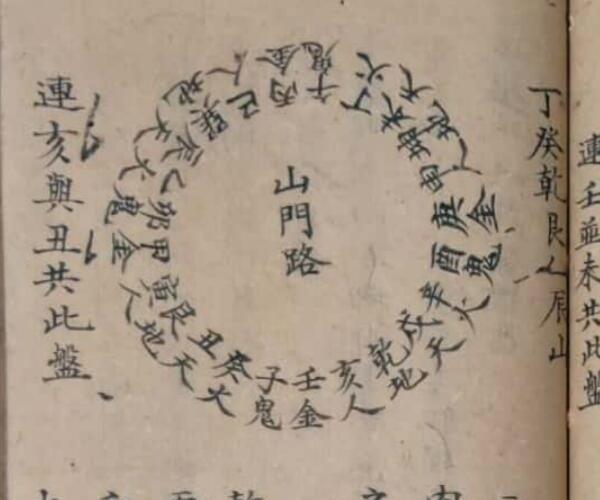 連壬並未共此盤
丁癸乾艮人辰山
山門路
午丙巳巽辰乙卯甲寅艮丑癸子壬亥乾戌辛酉庚申坤未丁
鬼金人地天火鬼金人地天火鬼金人地天火鬼金人地天火
連亥與丑共此盤